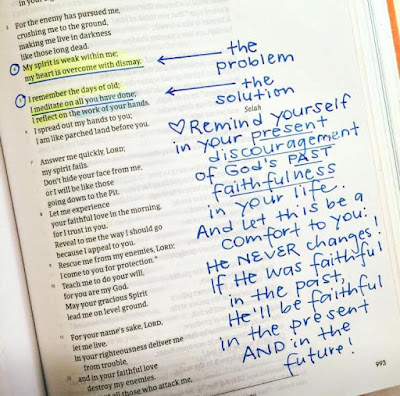 3 For the enemy has pursued me,
crushing me to the ground,
making me live in darkness
like those long dead.
4 My spirit is weak within me;
my heart is overcome with dismay.
5 I remember the days of old;
I meditate on all you have done;
I reflect on the work of your hands.
6 I spread out my hands to you;
I am like parched land before you.
Selah
7 Answer me quickly, LORD;
my spirit fails.
Don't hide your face from me,
or I will be like those
going down to the Pit.
8 Let me experience
your faithful love in the morning,
for I trust in you.
Reveal to me the way I should go
because I appeal to you.
9 Rescue me from my enemies, LORD;
I come to you for protection.
10 Teach me to do your will,
for you are my God.
May your gracious Spirit
lead me on level ground.
11 For your name's sake, LORD,
let me live.
In your righteousness deliver me
from trouble,
12 and in your faithful love
destroy my enemies.
all those who attack me,
the
problem
the
solution
♡ Remind yourself
in your present
discouragement
of God's PAST
faithfulness
in your life.
And let this be a
comfort to you:
He NEVER changes!
If He was faithful
in the past,
He'll be faithful
in the present
AND in the
future!
993